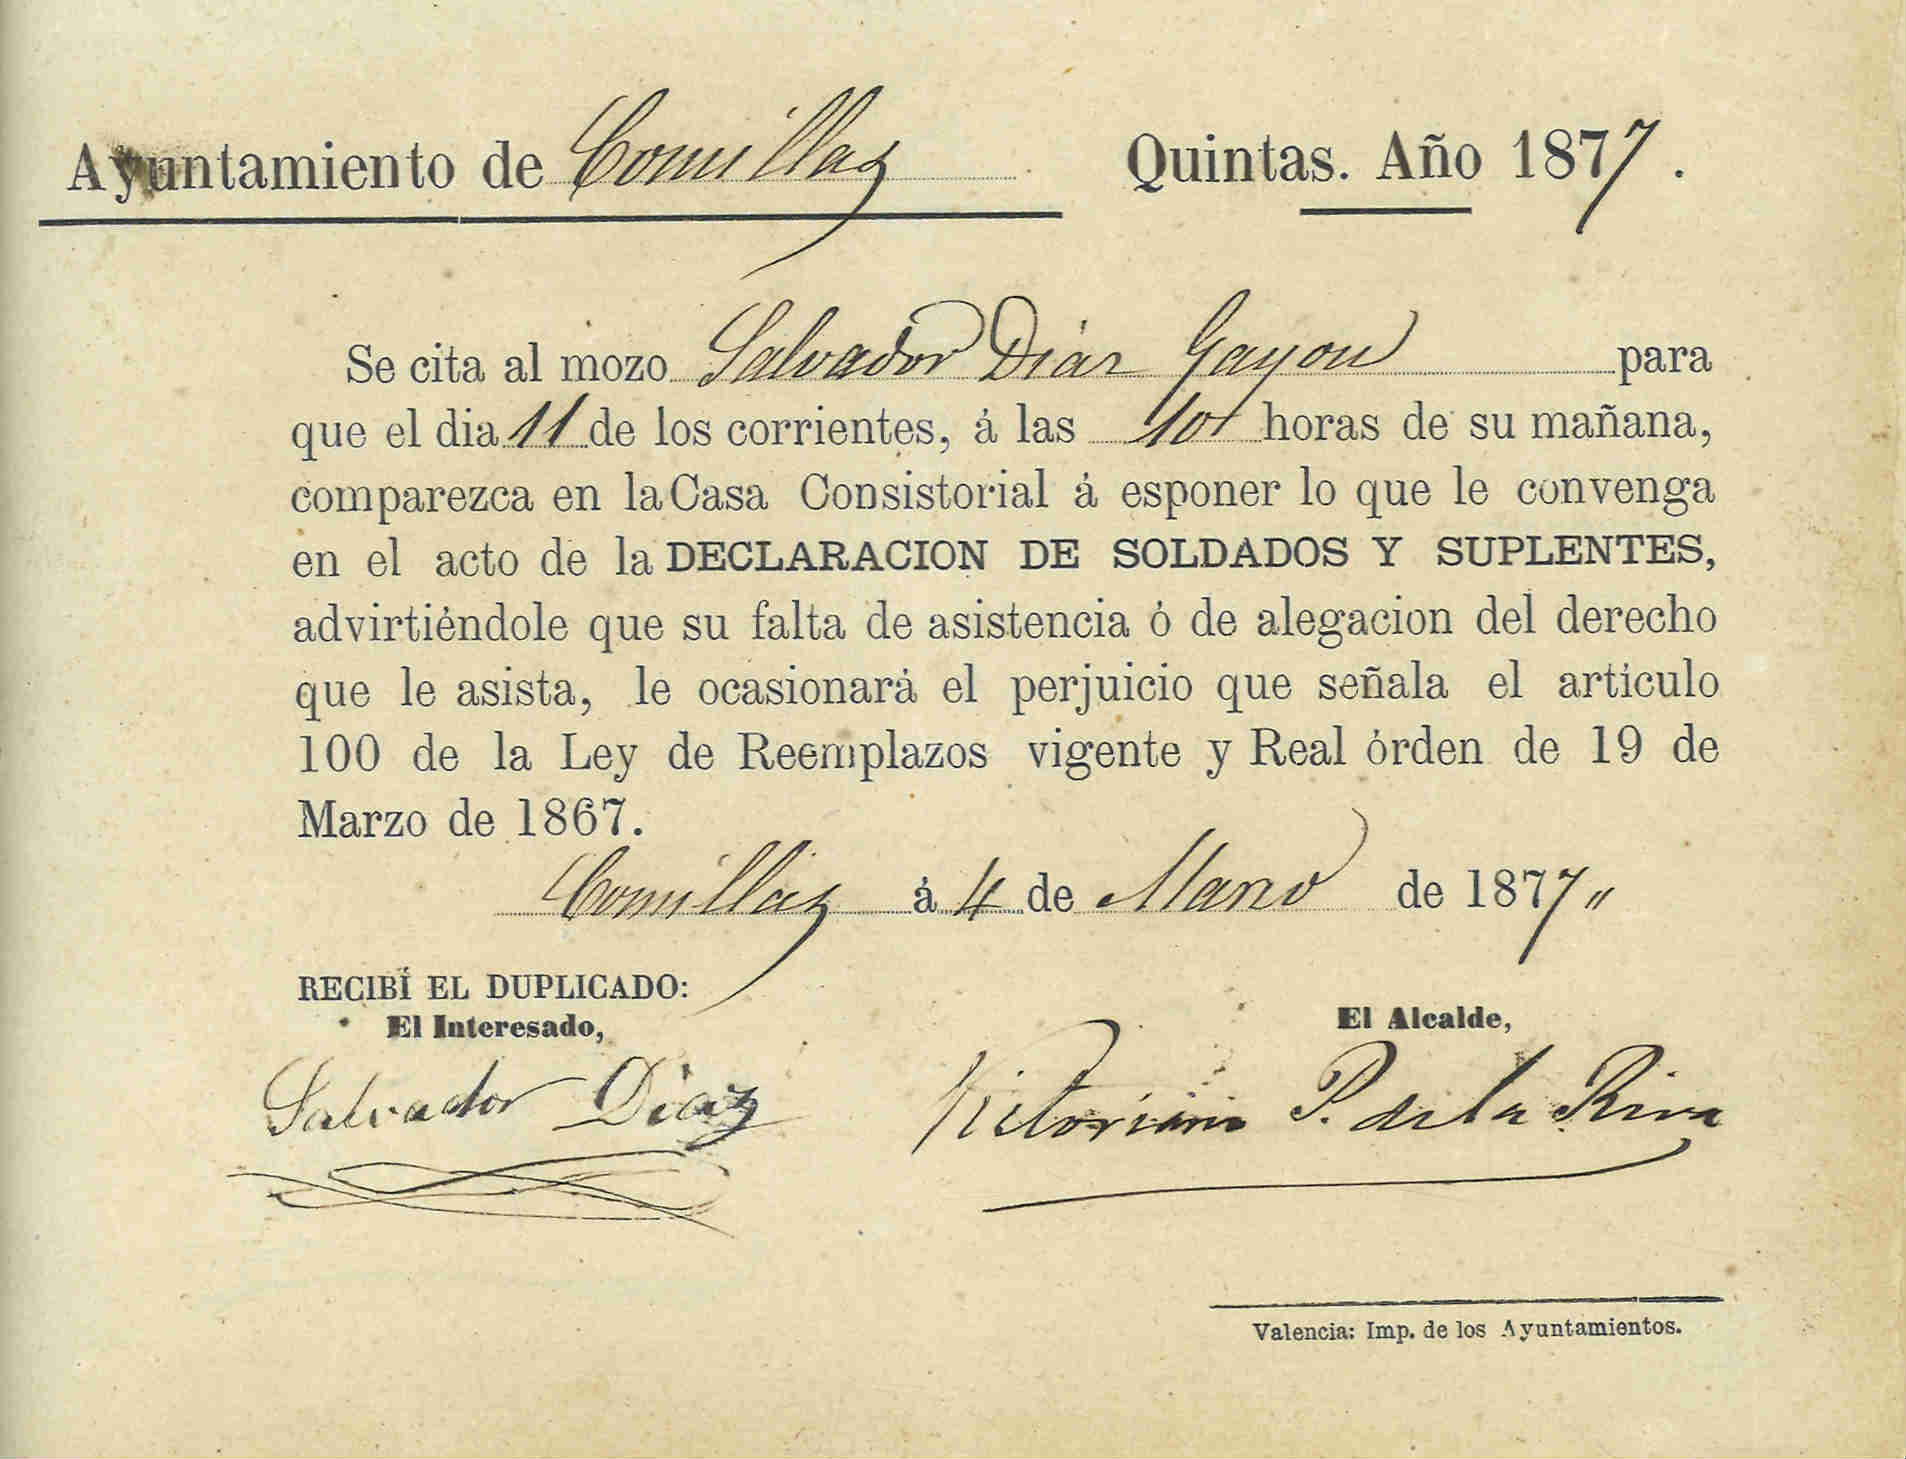 Ayuntamiento de Comillas Quintas. Año 1877.
Se cita al mozo Salvador Diáz Gayon para
que el dia 11 de los corrientes, á las 10 horas de su mañana,
comparezca en la Casa Consistorial á esponer lo que le convenga
en el acto de la DECLARACION DE SOLDADOS Y SUPLENTES,
advirtiéndole que su falta de asistencia ó de alegacion del derecho
que le asista, le ocasionará el perjuicio que señala el artículo
100 de la Ley de Reemplazos vigente y Real órden de 19 de
Marzo de 1867.
Comillas á 4 de Marzo de 1877 "
RECIBÍ EL DUPLICADO:
El Interesado,
El Alcalde,
Salvador Diaz
Victoriano P. de la Riva
Valencia: Imp. de los Ayuntamientos.